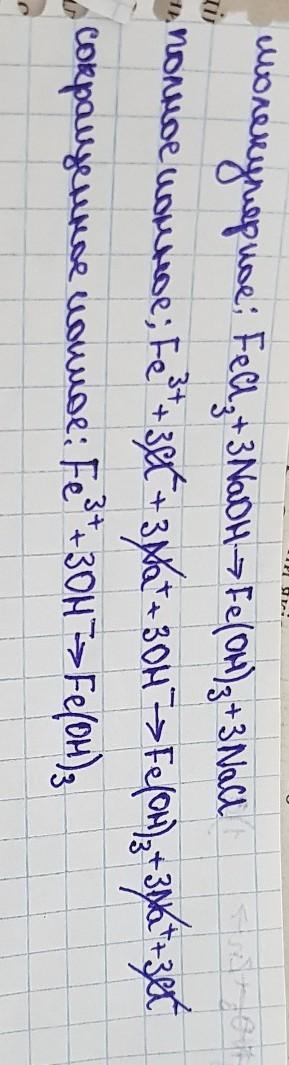 молекулярное: FeCl₃ + 3NaOH → Fe(OH)₃ + 3NaCl
полное ионное: Fe³⁺ + 3Cl⁻ + 3Na⁺ + 3OH⁻ → Fe(OH)₃ + 3Na⁺ + 3Cl⁻
сокращенное ионное: Fe³⁺ + 3OH⁻ → Fe(OH)₃